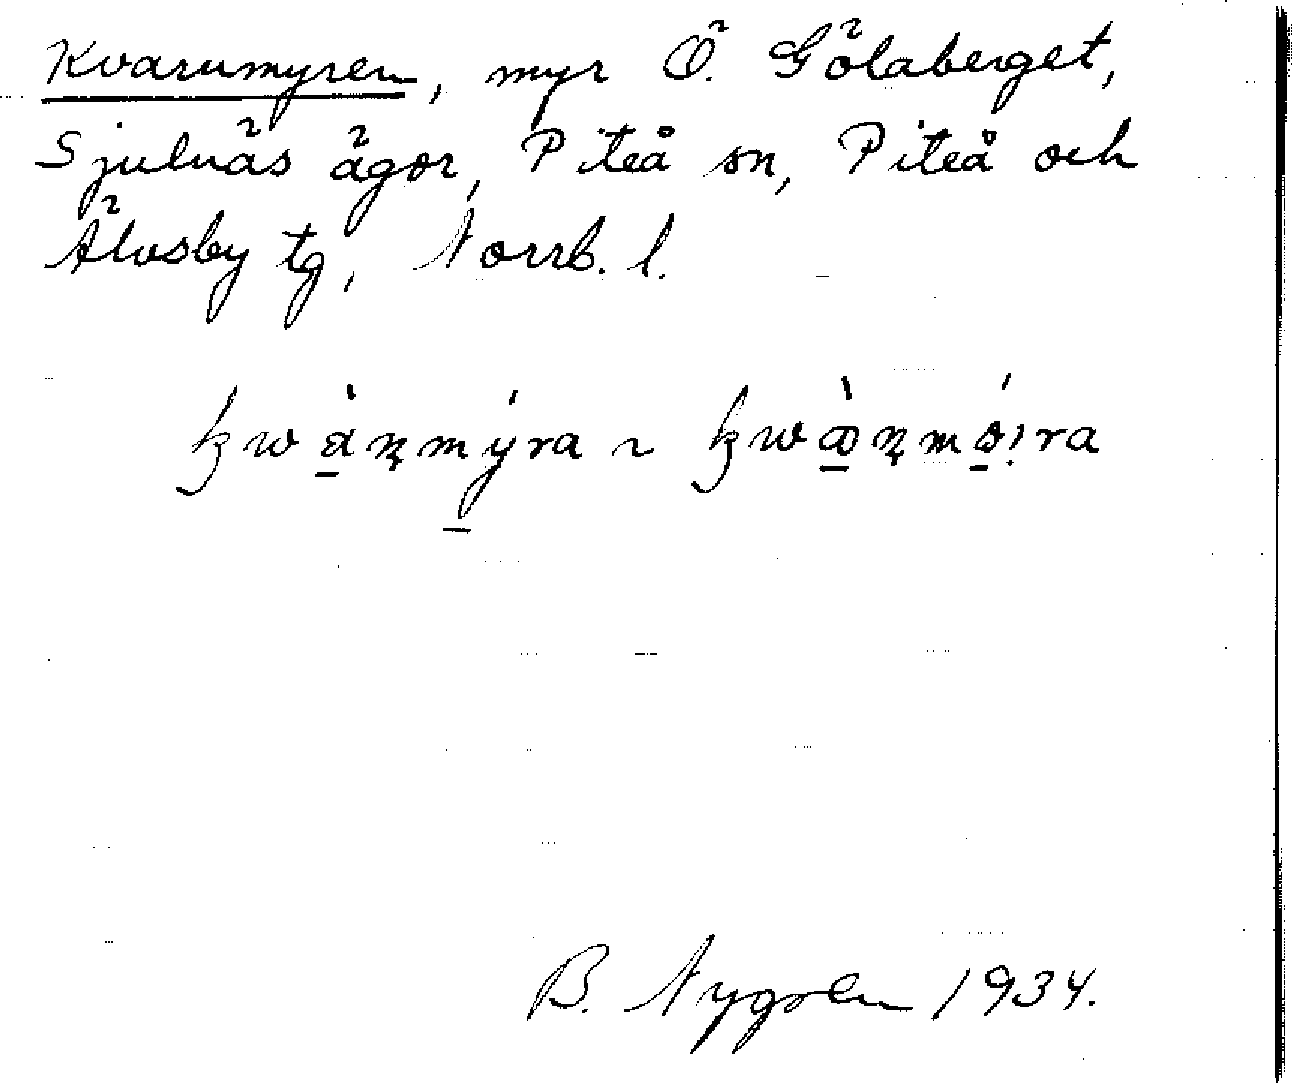 Kvarnmyren, myr Ö. Gölaberget,
Sjulnäs ägor, Piteå sn, Piteå och
Älvsby tg, Norrb. l.
B. Nygren 1934.